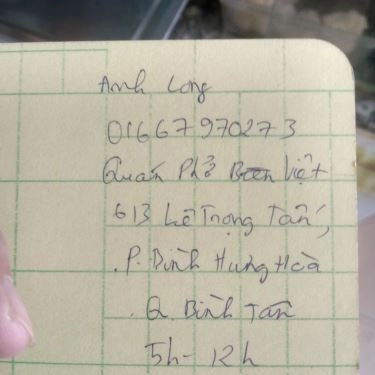 Anh Long
01667970273
Quán Phở Việt
613 Lê Trọng Tấn,
P. Bình Hưng Hoà
Q. Bình Tân
5h - 12h